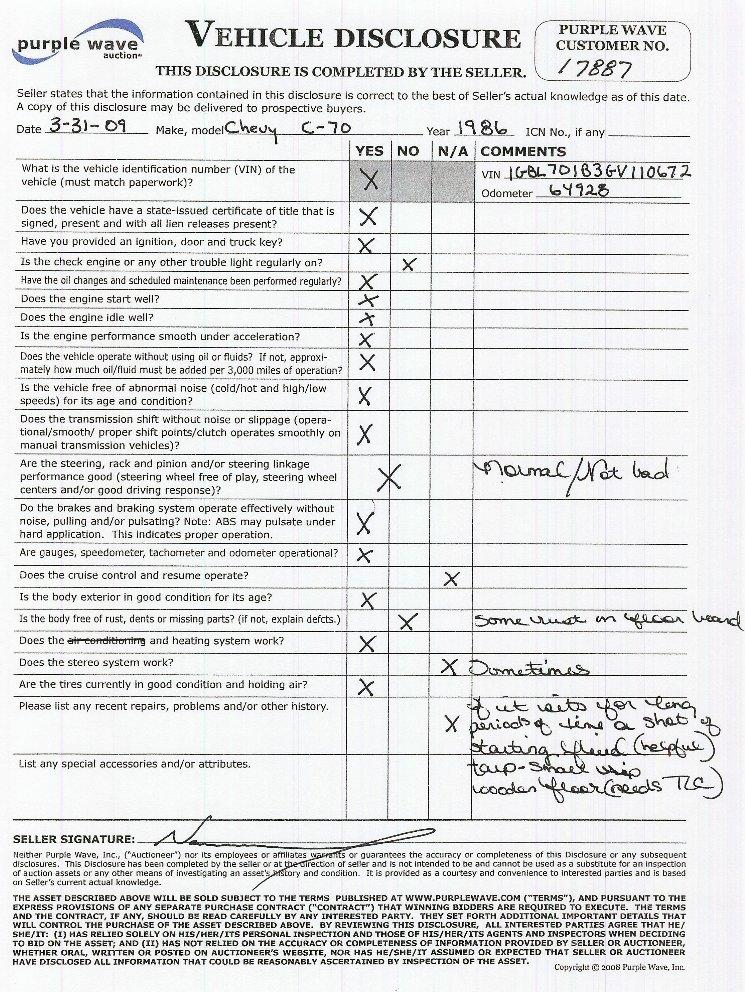 purple wave
auction
VEHICLE DISCLOSURE
THIS DISCLOSURE IS COMPLETED BY THE SELLER.
PURPLE WAVE
CUSTOMER NO.
17887
Seller states that the information contained in this disclosure is correct to the best of Seller's actual knowledge as of this date.
A copy of this disclosure may be delivered to prospective buyers.
Date 3-31-09 Make, model Chevy C-70 Year 1986 ICN No., if any
YES NO N/A COMMENTS
What is the vehicle identification number (VIN) of the
vehicle (must match paperwork)?
X
VIN 1GBL7D1B3GV110672
Odometer 64928
Does the vehicle have a state-issued certificate of title that is
signed, present and with all lien releases present?
X
Have you provided an ignition, door and truck key? X
Is the check engine or any other trouble light regularly on? X
Have the oil changes and scheduled maintenance been performed regularly? X
Does the engine start well? X
Does the engine idle well? X
Is the engine performance smooth under acceleration? X
Does the vehicle operate without using oil or fluids? If not, approxi-
mately how much oil/fluid must be added per 3,000 miles of operation?
X
Is the vehicle free of abnormal noise (cold/hot and high/low
speeds) for its age and condition?
X
Does the transmission shift without noise or slippage (opera-
tional/smooth/ proper shift points/clutch operates smoothly on
manual transmission vehicles)?
X
Are the steering, rack and pinion and/or steering linkage
performance good (steering wheel free of play, steering wheel
centers and/or good driving response)?
X
Normal/Not bad
Do the brakes and braking system operate effectively without
noise, pulling and/or pulsating? Note: ABS may pulsate under
hard application. This indicates proper operation.
X
Are gauges, speedometer, tachometer and odometer operational? X
Does the cruise control and resume operate? X
Is the body exterior in good condition for its age? X
Is the body free of rust, dents or missing parts? (if not, explain defcts.) X some rust on floor board
Does the air conditioning and heating system work? X
Does the stereo system work? X Sometimes
Are the tires currently in good condition and holding air? X
Please list any recent repairs, problems and/or other history.
X
If it sits for long
periods of time a shot of
starting fluid (helpful)
List any special accessories and/or attributes.
tarp-small rip
wooden floor (needs TLC)
SELLER SIGNATURE:
Neither Purple Wave, Inc., ("Auctioneer") nor its employees or affiliates warrants or guarantees the accuracy or completeness of this Disclosure or any subsequent
disclosures. This Disclosure has been completed by the seller or at the direction of seller and is not intended to be and cannot be used as a substitute for an inspection
of auction assets or any other means of investigating an asset's history and condition. It is provided as a courtesy and convenience to interested parties and is based
on Seller's current actual knowledge.
THE ASSET DESCRIBED ABOVE WILL BE SOLD SUBJECT TO THE TERMS PUBLISHED AT WWW.PURPLEWAVE.COM ("TERMS"), AND PURSUANT TO THE
EXPRESS PROVISIONS OF ANY SEPARATE PURCHASE CONTRACT ("CONTRACT") THAT WINNING BIDDERS ARE REQUIRED TO EXECUTE. THE TERMS
AND THE CONTRACT, IF ANY, SHOULD BE READ CAREFULLY BY ANY INTERESTED PARTY. THEY SET FORTH ADDITIONAL IMPORTANT DETAILS THAT
WILL CONTROL THE PURCHASE OF THE ASSET DESCRIBED ABOVE. BY REVIEWING THIS DISCLOSURE, ALL INTERESTED PARTIES AGREE THAT HE/
SHE/IT: (I) HAS RELIED SOLELY ON HIS/HER/ITS PERSONAL INSPECTION AND THOSE OF HIS/HER/ITS AGENTS AND INSPECTORS WHEN DECIDING
TO BID ON THE ASSET; AND (II) HAS NOT RELIED ON THE ACCURACY OR COMPLETENESS OF INFORMATION PROVIDED BY SELLER OR AUCTIONEER,
WHETHER ORAL, WRITTEN OR POSTED ON AUCTIONEER'S WEBSITE, NOR HAS HE/SHE/IT ASSUMED OR EXPECTED THAT SELLER OR AUCTIONEER
HAVE DISCLOSED ALL INFORMATION THAT COULD BE REASONABLY ASCERTAINED BY INSPECTION OF THE ASSET.
Copyright © 2008 Purple Wave, Inc.